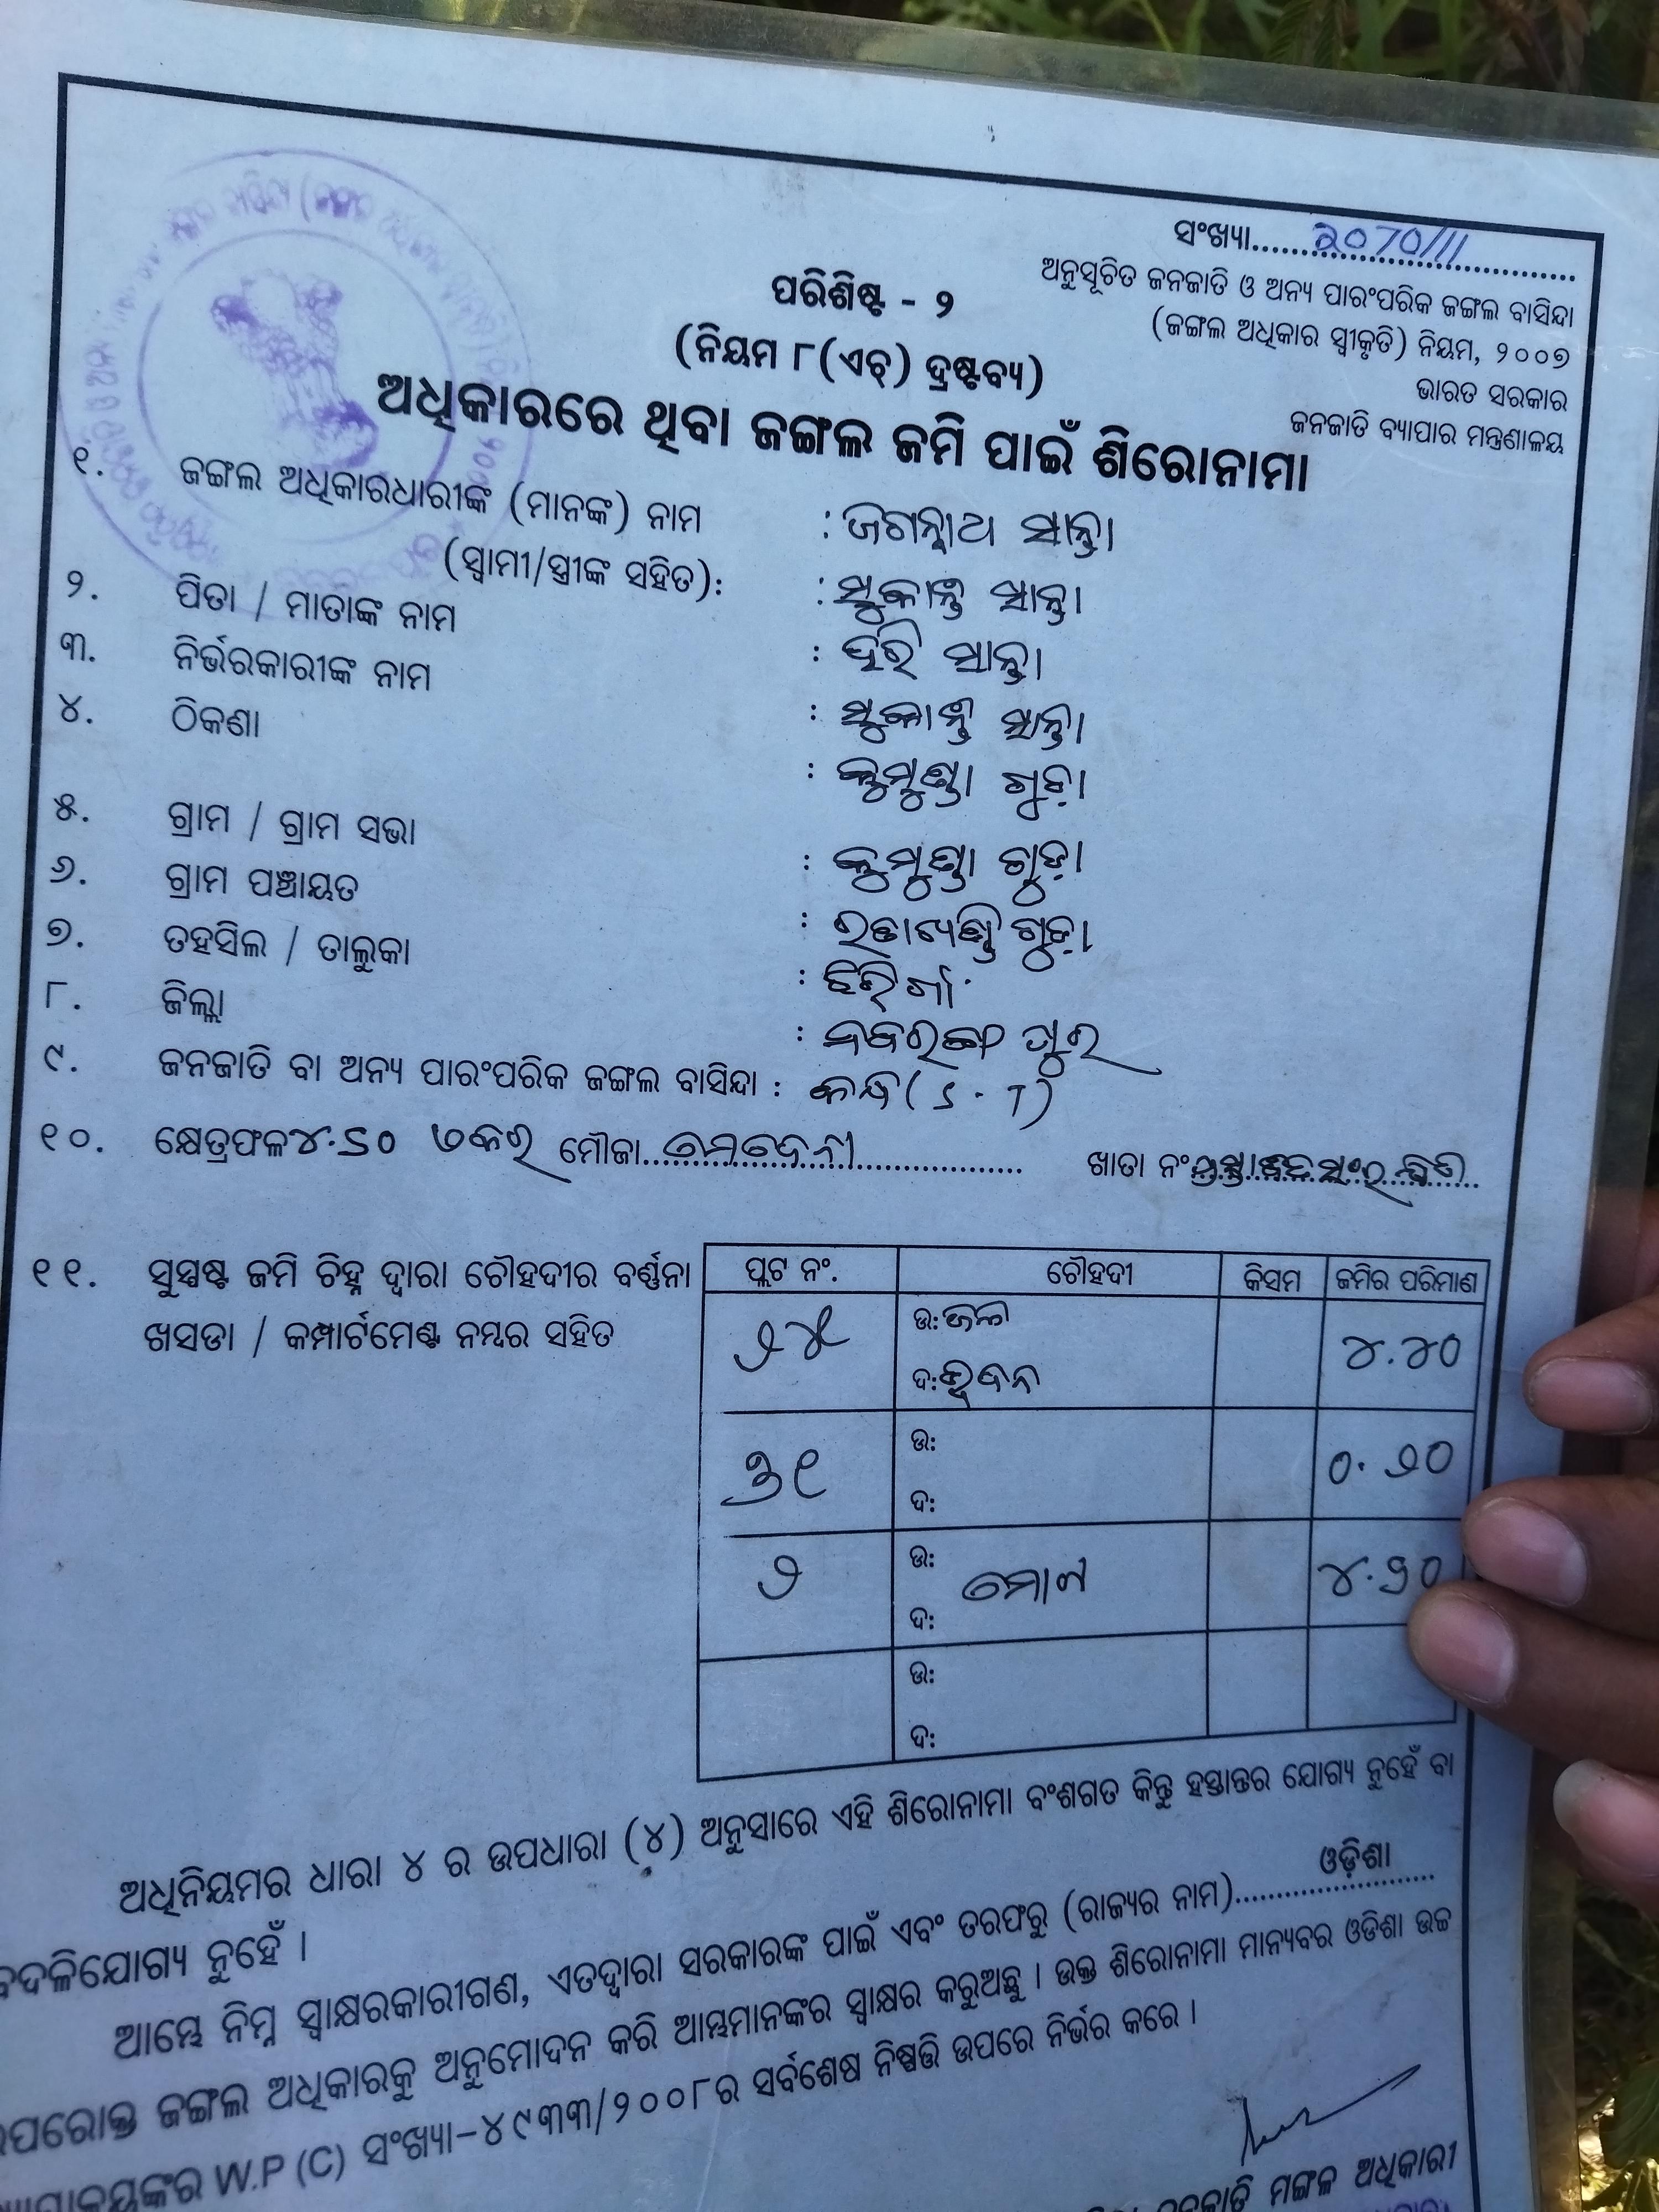 ସଂଖ୍ୟା
ଅନୁସୂଚିତ ଜନଜାତି ଓ ଅନ୍ୟ ପାରଂପରିକ ଜଙ୍ଗଲ ବାସିନ୍ଦା
(ଜଙ୍ଗଲ ଅଧିକାର ସ୍ୱୀକୃତି) ନିୟମ, ୨୦୦୭
ଭାରତ ସରକାର
ଜନଜାତି ବ୍ୟାପାର ମନ୍ତ୍ରଣାଳୟ
ପରିଶିଷ୍ଟ - ୨
(ନିୟମ ୮(ଏଚ୍) ଦ୍ରଷ୍ଟବ୍ୟ)
ଅଧିକାରରେ ଥିବା ଜଙ୍ଗଲ ଜମି ପାଇଁ ଶିରୋନାମା
୧. ଜଙ୍ଗଲ ଅଧିକାରଧାରୀଙ୍କ (ମାନଙ୍କ) ନାମ : ଜଗନ୍ନାଥ ସାନ୍ତା
(ସ୍ୱାମୀ/ସ୍ତ୍ରୀଙ୍କ ସହିତ): : ସୁକାନ୍ତି ସାନ୍ତା
୨. ପିତା / ମାତାଙ୍କ ନାମ : ହରି ସାନ୍ତା
୩. ନିର୍ଭରକାରୀଙ୍କ ନାମ : ସୁକାନ୍ତି ସାନ୍ତା
୪. ଠିକଣା : କୁମୁଣ୍ଡା ଗୁଡ଼ା
୫. ଗ୍ରାମ / ଗ୍ରାମ ସଭା : କୁମୁଣ୍ଡା ଗୁଡ଼ା
୬. ଗ୍ରାମ ପଞ୍ଚାୟତ : ଗୁଡ଼ା
୭. ତହସିଲ / ତାଲୁକା : ଝରିଗାଁ
୮. ଜିଲ୍ଲା : ନବରଙ୍ଗପୁର
୯. ଜନଜାତି ବା ଅନ୍ୟ ପାରଂପରିକ ଜଙ୍ଗଲ ବାସିନ୍ଦା : କନ୍ଧ (S.T)
୧୦. କ୍ଷେତ୍ରଫଳ ଏକର ମୌଜା ଖାତା ନଂ
୧୧. ସୁସ୍ପଷ୍ଟ ଜମି ଚିହ୍ନ ଦ୍ୱାରା ଚୌହଦୀର ବର୍ଣ୍ଣନା
ଖସଡା / କମ୍ପାର୍ଟମେଣ୍ଟ ନମ୍ବର ସହିତ
ପ୍ଲଟ ନଂ. ଚୌହଦୀ କିସମ ଜମିର ପରିମାଣ
୨୪ ଉ: ଜଳ ୪.୪୦
ଦ:
୩୧ ଉ: ୦.୨୦
ଦ:
୨ ଉ:
ଦ:
ଉ:
ଦ:
ଅଧିନିୟମର ଧାରା ୪ ର ଉପଧାରା (୪) ଅନୁସାରେ ଏହି ଶିରୋନାମା ବଂଶଗତ କିନ୍ତୁ ହସ୍ତାନ୍ତର ଯୋଗ୍ୟ ନୁହେଁ ବା
ବଦଳିଯୋଗ୍ୟ ନୁହେଁ ।
ଆମ୍ଭେ ନିମ୍ନ ସ୍ୱାକ୍ଷରକାରୀଗଣ, ଏତଦ୍ୱାରା ସରକାରଙ୍କ ପାଇଁ ଏବଂ ତରଫରୁ (ରାଜ୍ୟର ନାମ) ଓଡ଼ିଶା
ଉପରୋକ୍ତ ଜଙ୍ଗଲ ଅଧିକାରକୁ ଅନୁମୋଦନ କରି ଆମ୍ଭମାନଙ୍କର ସ୍ୱାକ୍ଷର କରୁଅଛୁ । ଉକ୍ତ ଶିରୋନାମା ମାନ୍ୟବର ଓଡିଶା ଉଚ୍ଚ
ନ୍ୟାୟାଳୟଙ୍କର W.P (C) ସଂଖ୍ୟା-୪୯୩୩/୨୦୦୮ର ସର୍ବଶେଷ ନିଷ୍ପତ୍ତି ଉପରେ ନିର୍ଭର କରେ ।
ମଙ୍ଗଳ ଅଧିକାରୀ